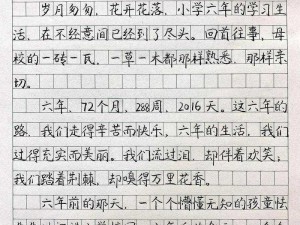 岁月匆匆，花开花落，小学六年的学习生
活，在不经意间已经到了尽头。回首往事，母
校的一砖一瓦，一草一木都那样熟悉，那样亲
切。
六年，72个月，288周，2016天。这六年的
路，我们走得辛苦而快乐，六年的生活，我们
过得充实而美丽。我们流过泪，却伴着欢笑；
我们踏着荆棘，却嗅得万里花香。
六年前的那天，一个个懵懂无知的孩童怯